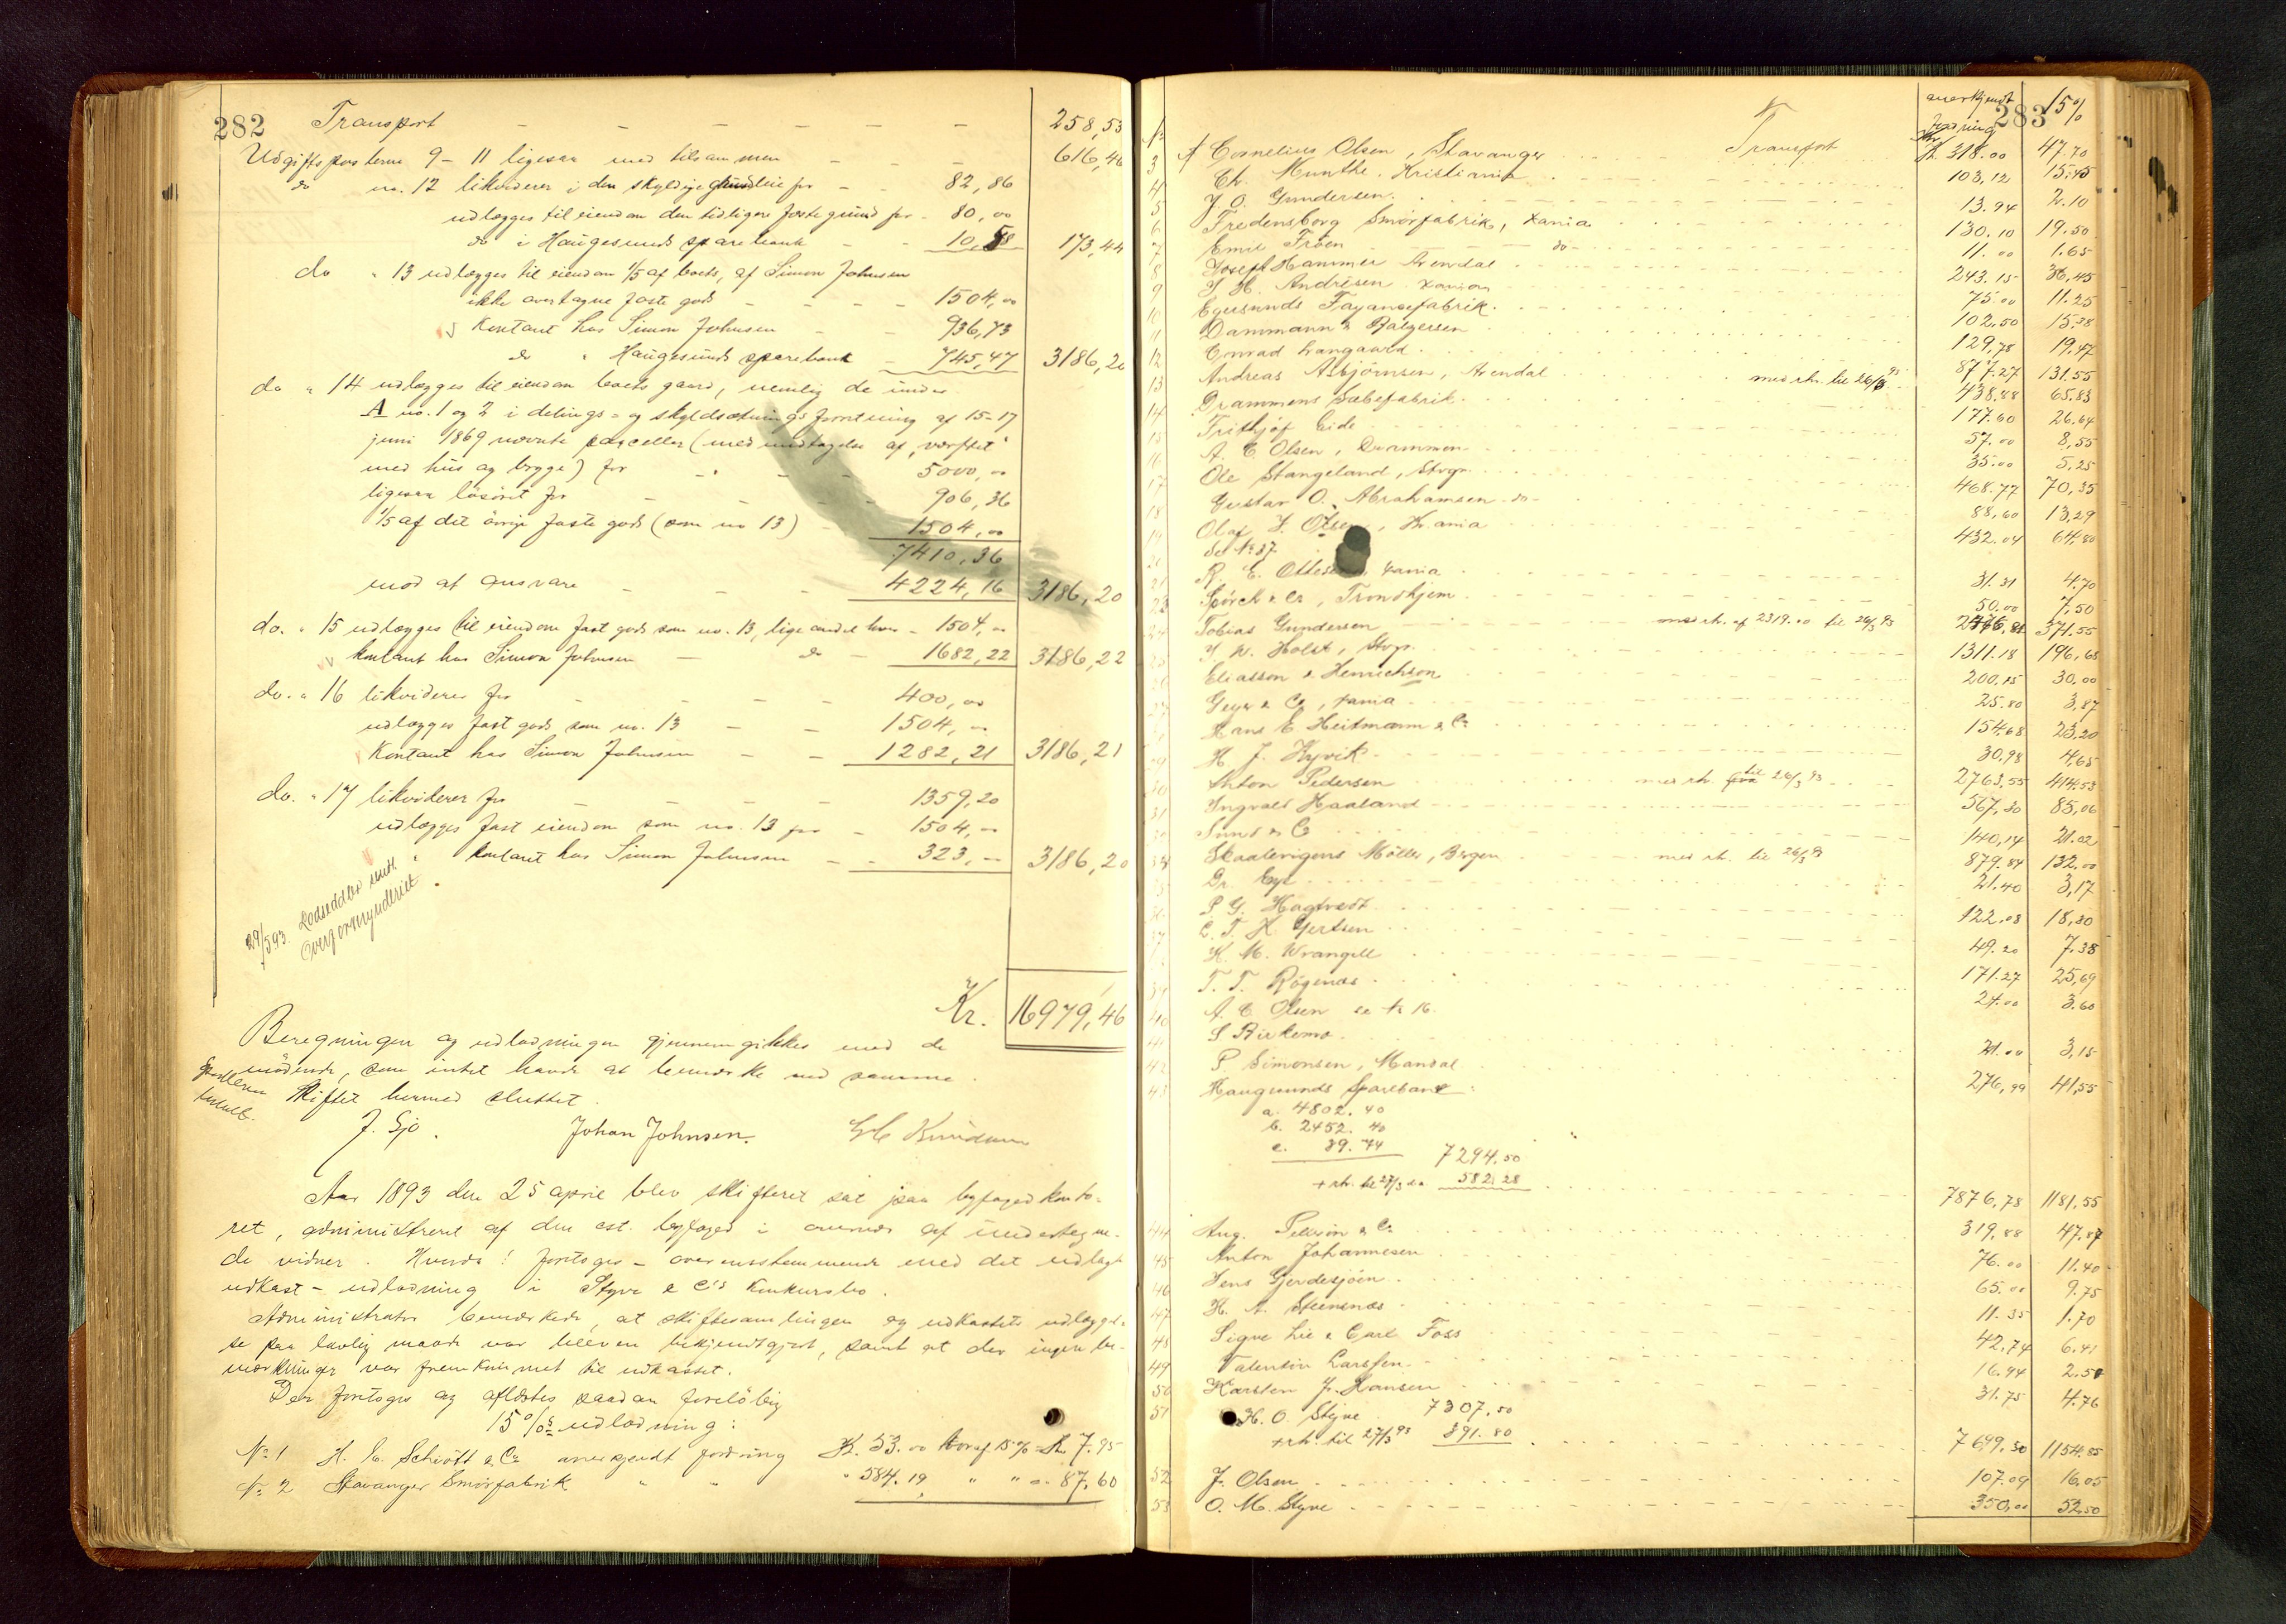 282 Transport - - - - - - 258,53
Udgiftsposterne 9-11 ligesaa med tilsammen - - - 616,46
do no. 12 likviderer i den skyldige grundleie for - - 82,86
udlægges til eiendom den tidligere fæstegrund for - 80,00
do i Haugesunds sparebank - - 10,58 173,44
do " 13 udlægges til eiendom 1/5 af boets, af Simon Johnsen
ikke overtagne faste gods - - - - 1504,00
Kontant hos Simon Johnsen - - 936,73
do " Haugesunds sparebank - 745,47 3186,20
do " 14 udlægges til eiendom boets gaard, nemlig de under
A no. 1 og 2 i delings- og skyldsætningsforretning af 15-17
juni 1869 nævnte parceller (med undtagelse af "værftet"
med hus og brygge) for - - - 5000,00
ligesaa løsøret for - - - - 906,36
1/5 af det øvrige faste gods (som no 13) - 1504,00
7410,36
mod at ansvare - - - 4224,16 3186,20
do. " 15 udlægges til eiendom fast gods som no. 13, lige andel hver - 1504,00
kontant hos Simon Johnsen - do - 1682,22 3186,22
do. " 16 likviderer for - - - 400,00
udlægges fast gods som no. 13 - - 1504,00
Kontant hos Simon Johnsen - - 1282,21 3186,21
do. " 17 likviderer for - - - - 1359,20
udlægges fast eiendom som no. 13 for - 1504,00
kontant hos Simon Johnsen - - 323,00 3186,20
29/5 93. Lodseddler sendt
Overformynderiet.
Kr. 16979,46
Beregningen og udlodningen gjennemgikkes med de
mødende, som intet havde at bemærke ved samme.
Skiftet hermed sluttet.
J. Sjo. Johan Johnsen. Knudsen
Aar 1893 den 25 april blev skifteret sat paa byfogedkonto-
ret, administreret af den cst. byfoged i overvær af undertegne-
de vidner. Hvorda! foretoges - overensstemmende med det udlagte
udkast - udlodning i Styve & Cos konkursbo.
Administrator bemærkede, at skiftesamlingen og udkastets udlæggel-
se paa lovlig maade var bleven bekjendtgjort, samt at der ingen be-
mærkninger var fremkommet til udkastet.
Der foretoges og oplæstes saadan foreløbig
15 % udlodning:
No 1 H. C. Schiøtt & Co anerkjendt fordring Kr. 53.00 hvoraf 15 % = Kr 7.95
No 2 Stavanger Smørfabrik " " " 584.19 " " = 87.60
283
Transport anerkjendt fordring 15%
3 Cornelius Olsen, Stavanger Kr. 318.00 47.70
4 Chr. Munthe, Kristiania 103,12 15.45
5 J. O. Gundersen 13.94 2.10
6 Fredensborg Smørfabrik, Xania 130.10 19.50
7 Emil Frøen do 11.00 1.65
8 Joseph Hammer Arendal 243.15 36,45
9 J. H. Andrèsen Xania 75.00 11.25
10 Egersunds Fayancefabrik 102.50 15,38
11 Dammann & 129,78 19.47
12 Conrad Langaard 877.27 131.55
13 Andreas Asbjørnsen, Arendal med rh. til 26/3 93 438.88 65.83
14 Drammens Sæbefabrik 177.60 26.64
15 Frithjof Eide 57.00 8,55
16 A. C. Olsen, Drammen 35.00 5,25
17 Ole Stangeland, Stvgr. 468.77 70,35
18 Gustav O. Abrahamsen do 88,60 13,29
19 Olaf J. Olsen, Kr.ania 432.04 64,80
20 se No 37
21 R. E. Xania 31.31 4.70
Spørck & Co, Trondhjem 50.00 7.50
24 Tobias Gundersen med rh. af 2319.00 til 26/3 93 2476,82 371.55
J. W. Holst, Stvgr. 1311.18 196,68
Eliasson & Henrichson 200.15 30,00
Geys & Co, Xania 25.80 3,87
Hans E. Heitmann & Co 154.68 23,20
29 H. J. Kyvik 30,98 4,65
30 Anton Pedersen med rh. til 26/3 93 2763,55 414.53
31 Ingvald Haaland 567,30 85,06
Sund & Co 140,14 21.02
Skaalevigens Mølle, Bergen med rh. til 26/3 93 879.84 132.00
Dr. Eye 21.40 3,17
P. G. Hagtvedt 122.08 18,30
C. T. K. Gjertsen 49.20 7.38
K. M. Wrangell 171.27 25,69
T. T. Røgenæs 24.00 3.60
40 A. C. Olsen se No 16.
S. Birkemo 21.00 3,15
42 P. Simonsen, Mandal 276,99 41,55
43 Haugesunds Sparebank:
a. 4802.40
b. 2452.40
c. 39.74 7294.50
+ rh. til 27/3 d.a. 582.28 7876,78 1181.55
44 Aug. Pellerin & Co 319,88 47.87
45 Anton Johannesen 76.00 11.40
46 Jens Gjerdesjøen 65.00 9.75
47 H. A. Steensnæs 11.35 1.70
48 Signe Lie & Carl Foss 42,74 6.41
49 Valentin Larssen 16.94 2.50
50 Karsten J. Hansen 31.75 4.76
51 H. O. Styve 7307.50
+ rh. til 27/3 93 391.80 7699.30 1154.85
52 J. Olsen 107.09 16.05
53 O. M. Styve 350,00 52.50